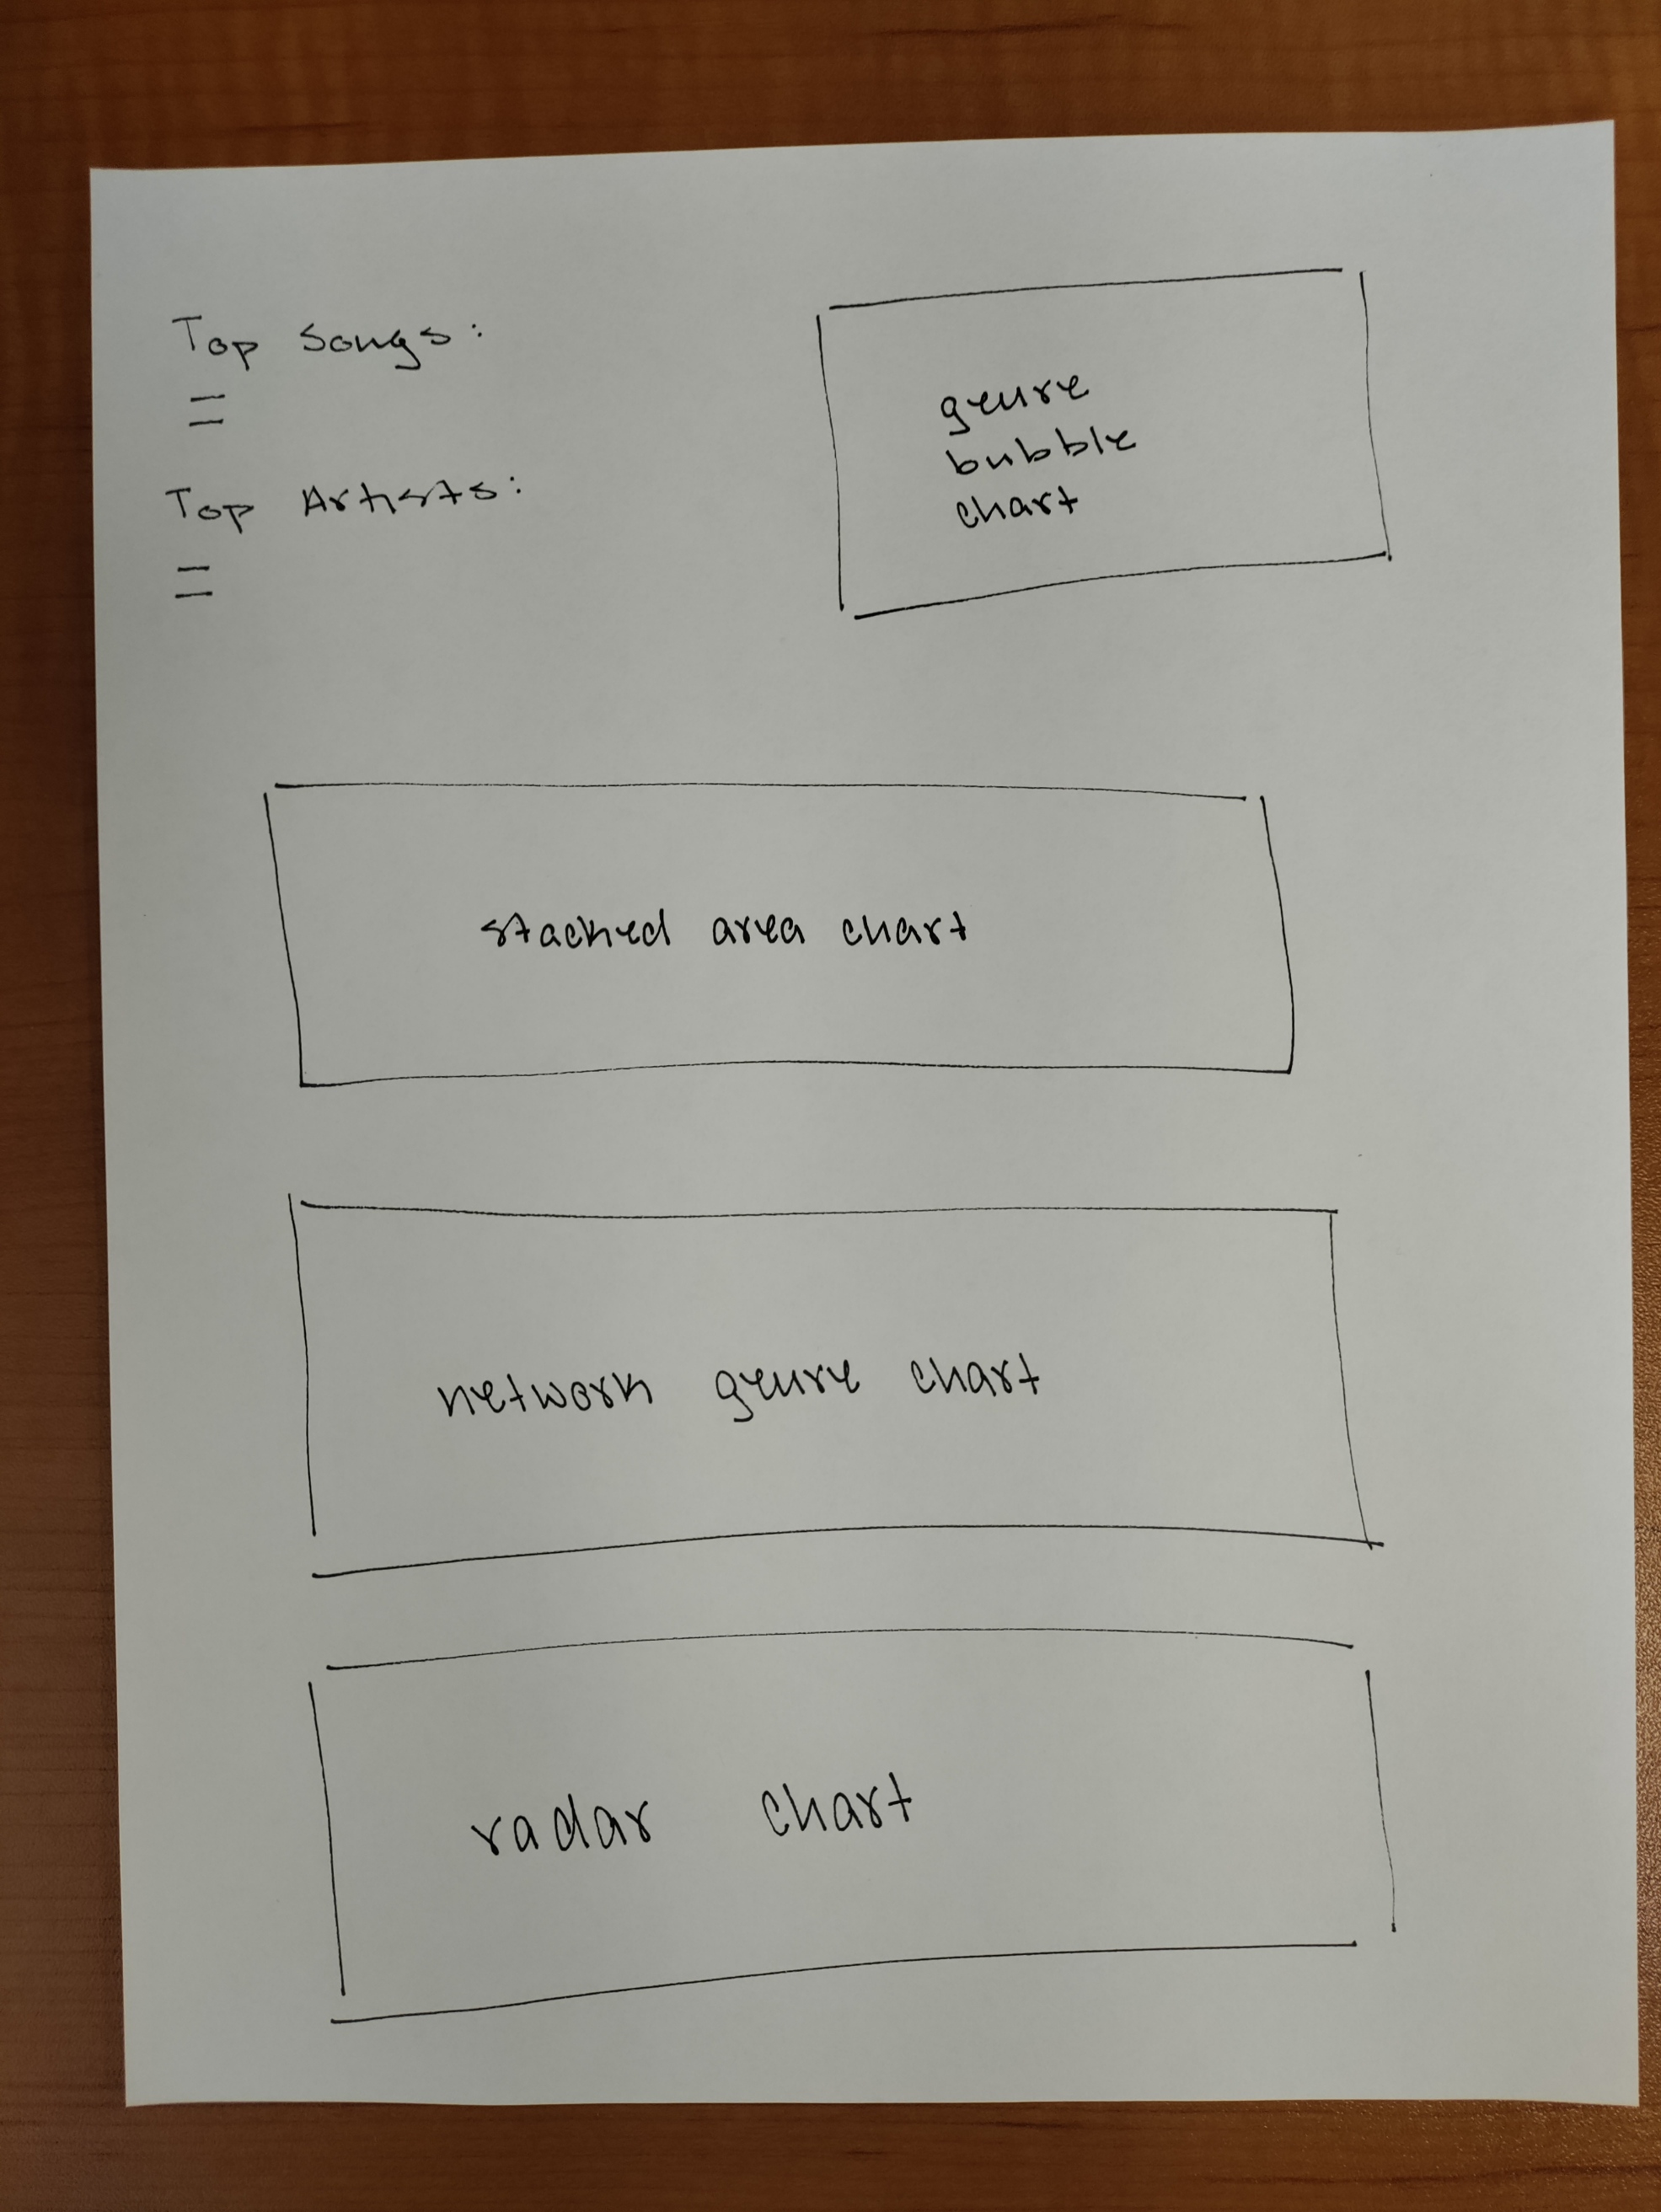 Top Songs:
Top Artists:
genre
bubble
chart
stacked area chart
network genre chart
radar chart